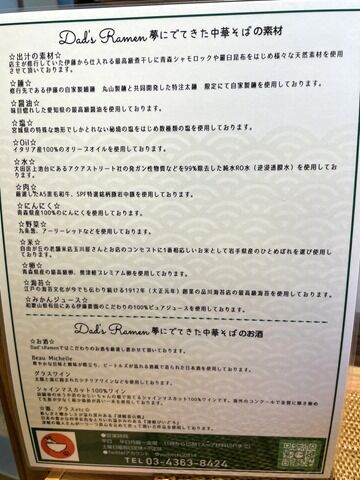 Dad's Ramen 夢にでてきた中華そばの素材
☆出汁の素材☆
店主が修行していた伊藤から仕入れる最高級煮干しに青森シャモロックや羅臼昆布をはじめ様々な天然素材を使用
させて頂いております。
☆麺☆
修行先である伊藤の自家製麺 丸山製麺と共同開発した特注太麺 限定にて自家製麺を使用しております。
☆醤油☆
毎日惚れした愛知県の最高級醤油を使用しております。
☆塩☆
宮城県の特殊な地形でしかとれない秘境の塩をはじめ数種類の塩を使用しております。
☆Oil☆
イタリア産100%のオリーブオイルを使用しております。
☆水☆
大田区上池台にあるアクアストリート社の発ガン性物質などを99%除去した純水RO水(逆浸透膜水)を使用してお
ります。
☆肉☆
厳選したA5黒毛和牛、SPF特選銘柄豚岩中豚を使用しております。
☆にんにく☆
青森県産100%のにんにくを使用しております。
☆野菜☆
九条葱、アーリーレッドなどを使用しております。
☆米☆
自由が丘の老舗米店玉川屋さんとお店のコンセプトに1番相応しいお米として岩手県産のひとめぼれを選び使用し
ております。
☆卵☆
青森県産の最高級卵、奥津軽プレミアム卵を使用しております。
☆海苔☆
江戸の海苔文化が今でも伝わり続ける1917年(大正元年)創業の品川海苔店の最高級海苔を使用しております。
☆みかんジュース☆
和歌山県有田にある伊藤農園のこだわりの100%ピュアジュースを使用しております。
Dad's Ramen 夢にでてきた中華そばのお酒
☆お酒☆
Dad'sRamenではこだわりのお酒を厳選し置かせて頂いております。
Beau Michelle
爽やかな甘味と酸味が際立ち、ビートルズが流れる酒蔵で造られた日本酒を使用しております。
グラスワイン
土壌と風に揉まれたシチリアワインなどを使用しております。
シャインマスカット100%ワイン
TEL 03-4363-8424